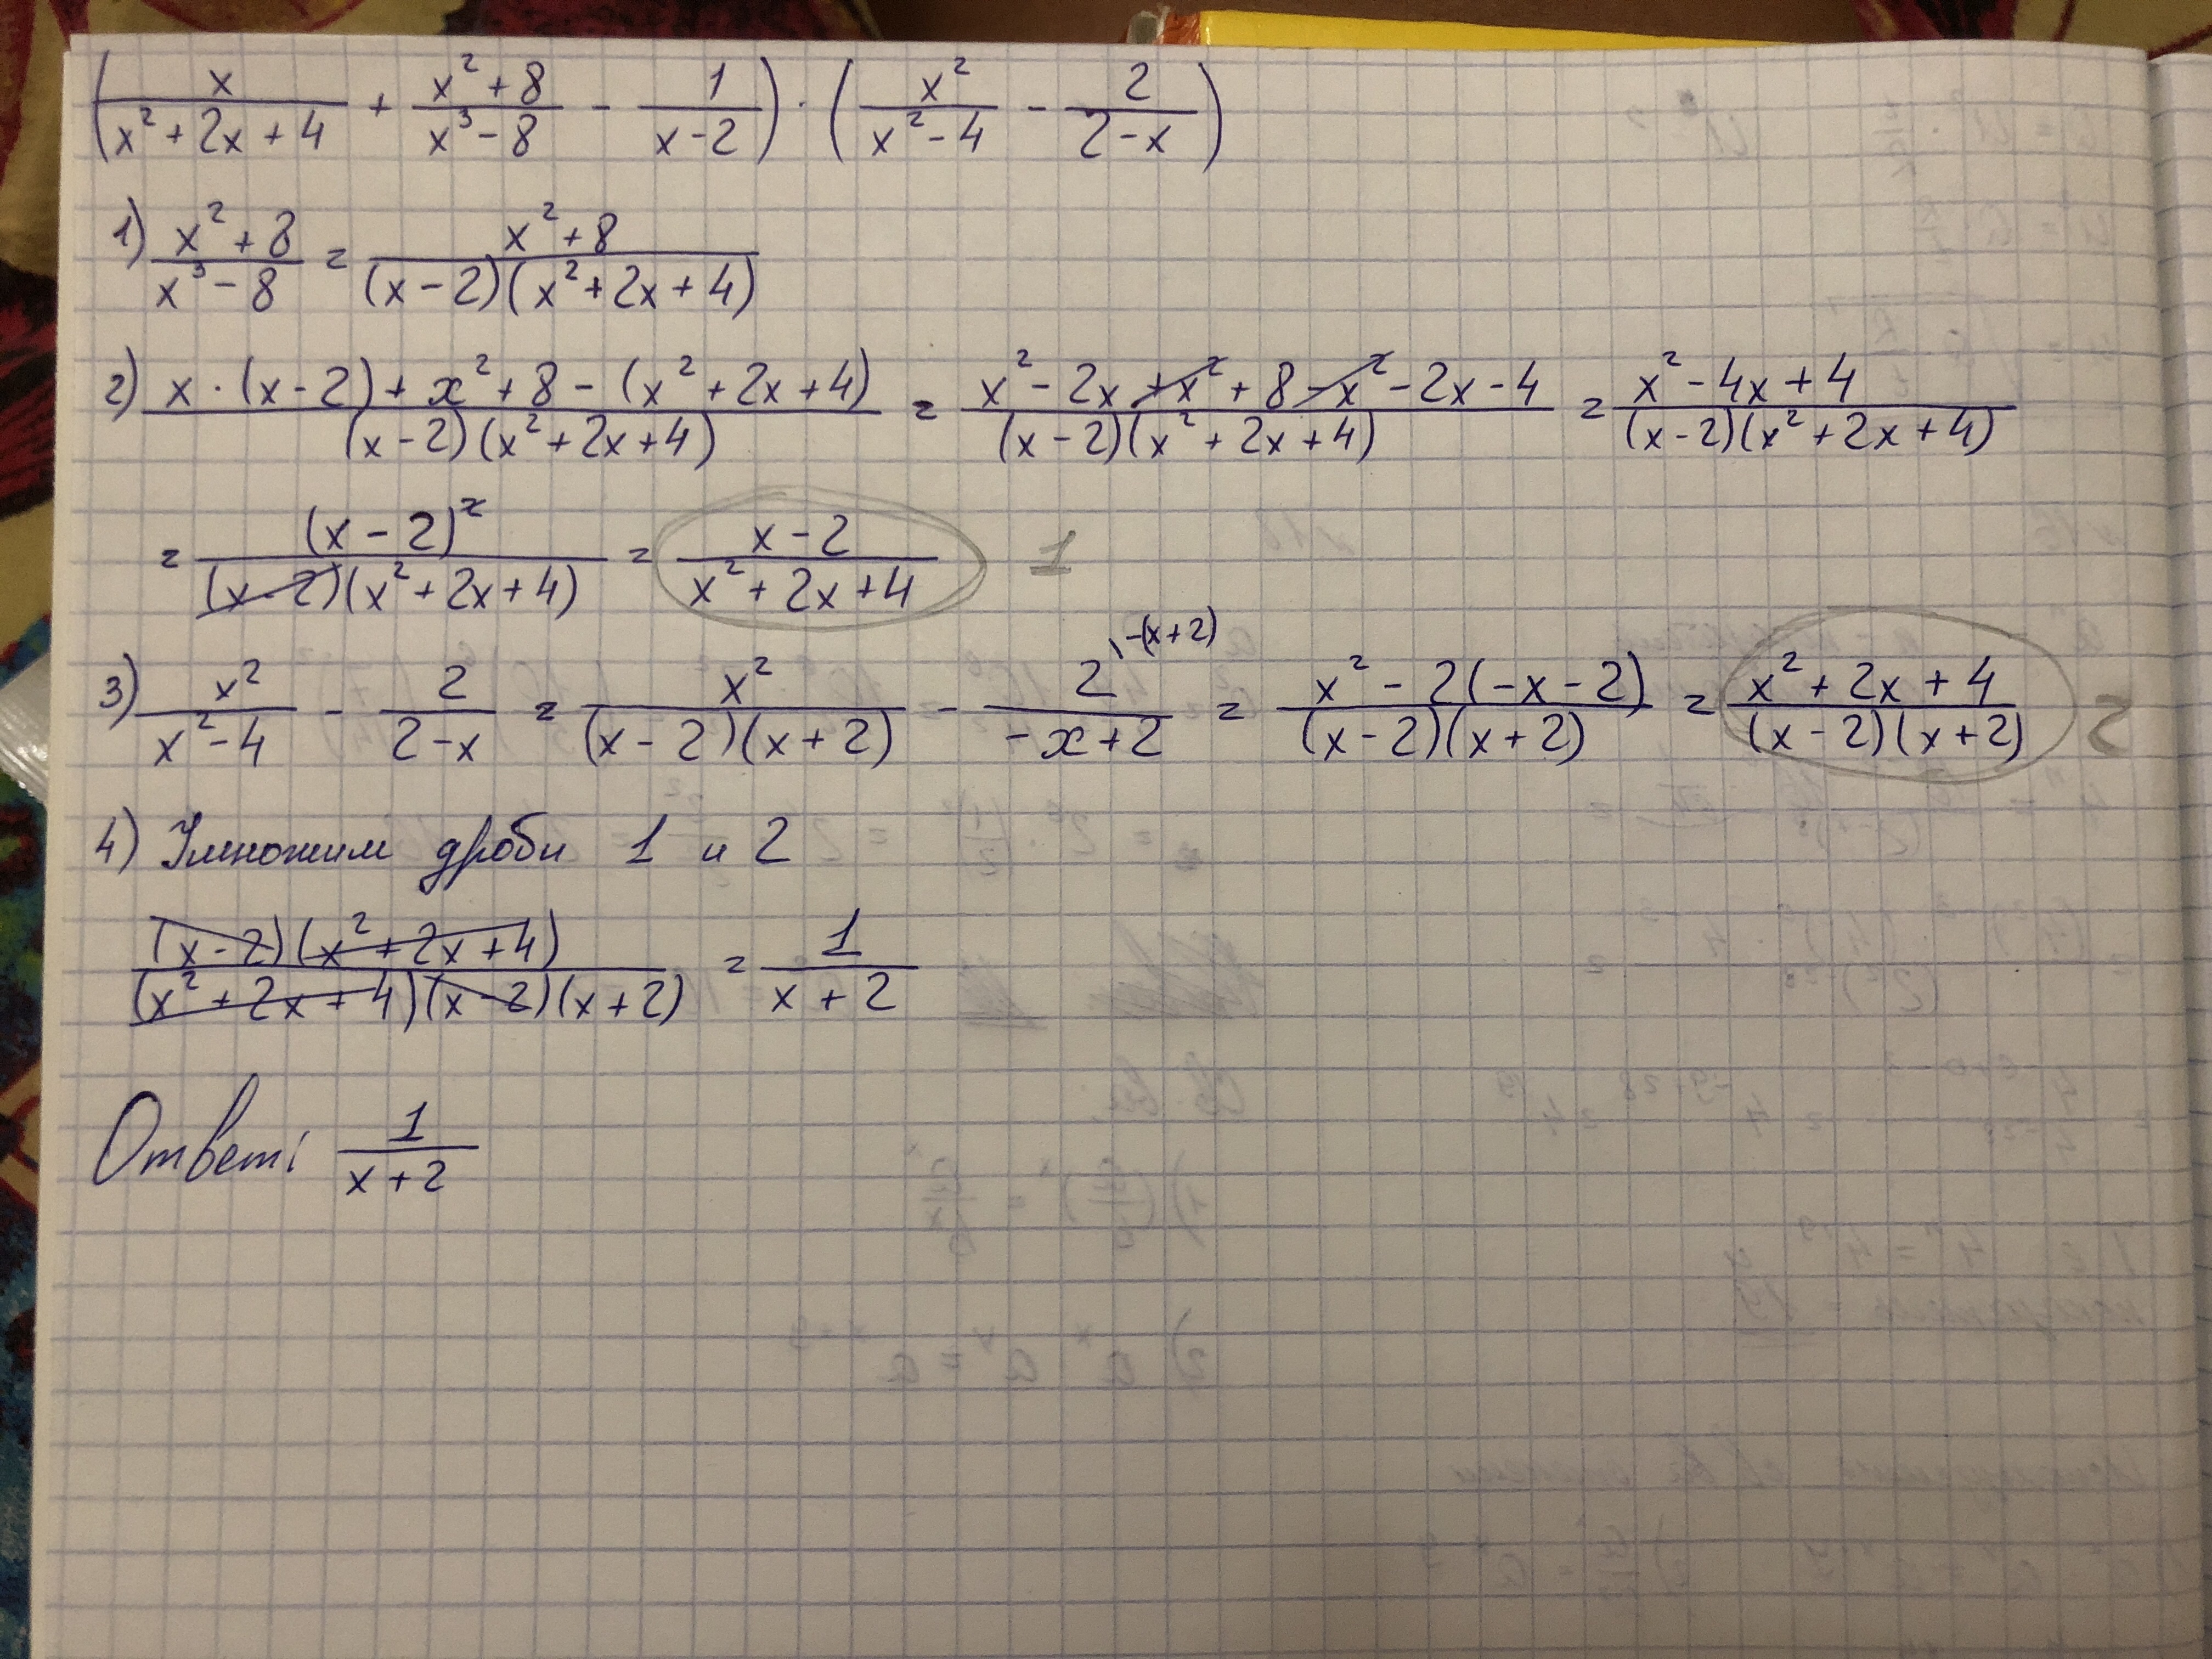 (x/(x²+2x+4) + (x²+8)/(x³-8) - 1/(x-2)) · (x²/(x²-4) - 2/(2-x))
1) (x²+8)/(x³-8) = (x²+8)/((x-2)(x²+2x+4))
2) (x·(x-2)+x²+8-(x²+2x+4))/((x-2)(x²+2x+4)) = (x²-2x+x²+8-x²-2x-4)/((x-2)(x²+2x+4)) = (x²-4x+4)/((x-2)(x²+2x+4))
= (x-2)²/((x-2)(x²+2x+4)) = (x-2)/(x²+2x+4) 1
3) x²/(x²-4) - 2/(2-x) = x²/((x-2)(x+2)) - 2\-(x+2)/(-x+2) = (x²-2(-x-2))/((x-2)(x+2)) = (x²+2x+4)/((x-2)(x+2)) 2
4) Умножим дроби 1 и 2
((x-2)(x²+2x+4))/((x²+2x+4)(x-2)(x+2)) = 1/(x+2)
Ответ: 1/(x+2)